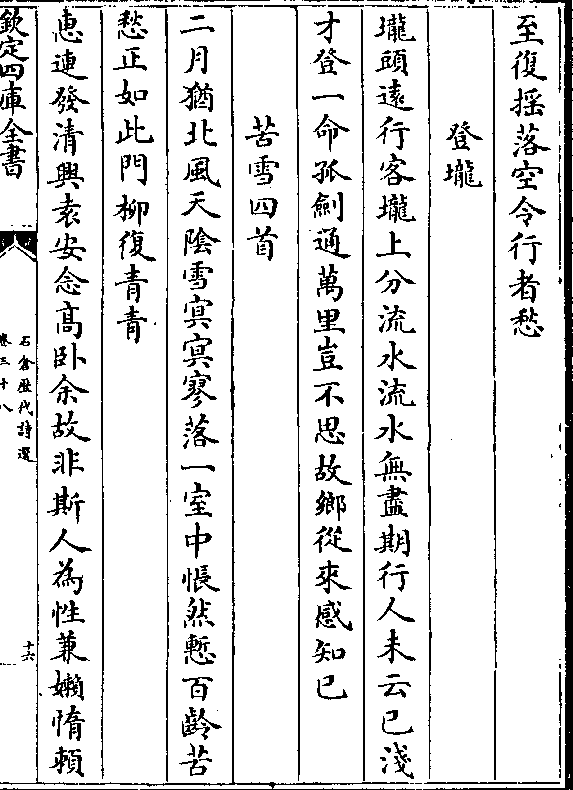 至復揺落空令行者愁
登壠
壠頭遠行客壠上分流水流水無盡期行人未云已淺
才登一命孤劍通萬里豈不思故鄉從來感知已
苦雪四首
二月猶北風天隂雪㝠㝠寥落一室中悵然慙百齡苦
愁正如此門柳復青青
惠連發清興袁安念髙卧余故非斯人為性兼嬾惰頼
欽定四庫全書
石倉歴代詩選
卷三十八
十六